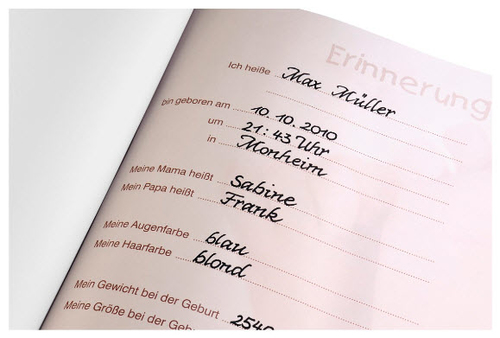 Erinnerung
Ich heiße Max Müller
bin geboren am 10.10.2010
um 21:43 Uhr
in Monheim
Meine Mama heißt Sabine
Mein Papa heißt Frank
Meine Augenfarbe blau
Meine Haarfarbe blond
Mein Gewicht bei der Geburt
Meine Größe bei der